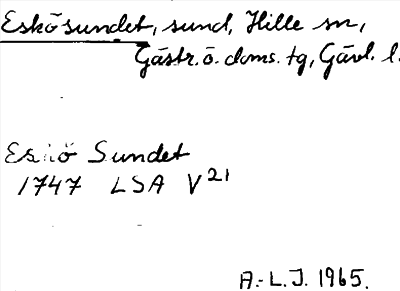 Eskösundet, sund, Hille sn,
Gästr. ö. doms. tg, Gävl. l.
Eskö Sundet
1747 LSA V²¹
A.-L.J. 1965.